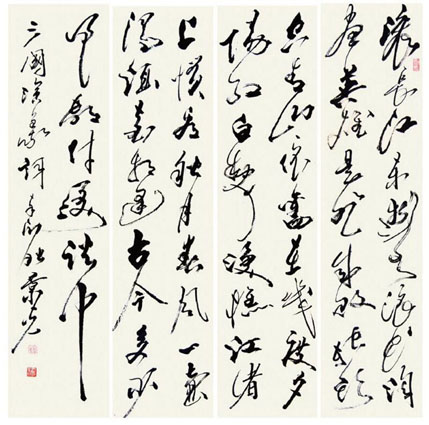 滚滚长江东逝水浪花淘
尽英雄是非成败转头
空青山依旧在几度夕
阳红白发渔樵江渚
上惯看秋月春风一壶
浊酒喜相逢古今多少
事都付笑谈中
三国演义歌词